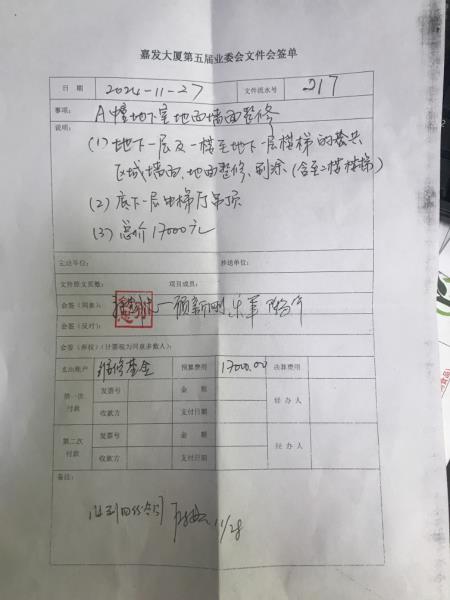 嘉发大厦第五届业委会文件会签单
日 期 2024-11-27 文件流水号 217
事项: A幢地下室地面墙面整修
说明:
(1) 地下一层及一楼至地下一层楼梯的公共
区域墙面、地面整修、刷漆 (含至2楼楼梯)
(2) 底下一层电梯厅吊顶
(3) 总价17000元
主送单位: 抄送单位:
文件原文页数: 项目成员:
会签(同意):
会签(反对):
会签(弃权)(计票视为同意多数人):
支出账户 维修基金 预算费用 17000.00 决算费用
第一次付款 发票号 金 额 经 办 人
收款方 支付日期
第二次付款 发票号 金 额 经 办 人
收款方 支付日期
备注:
11/28